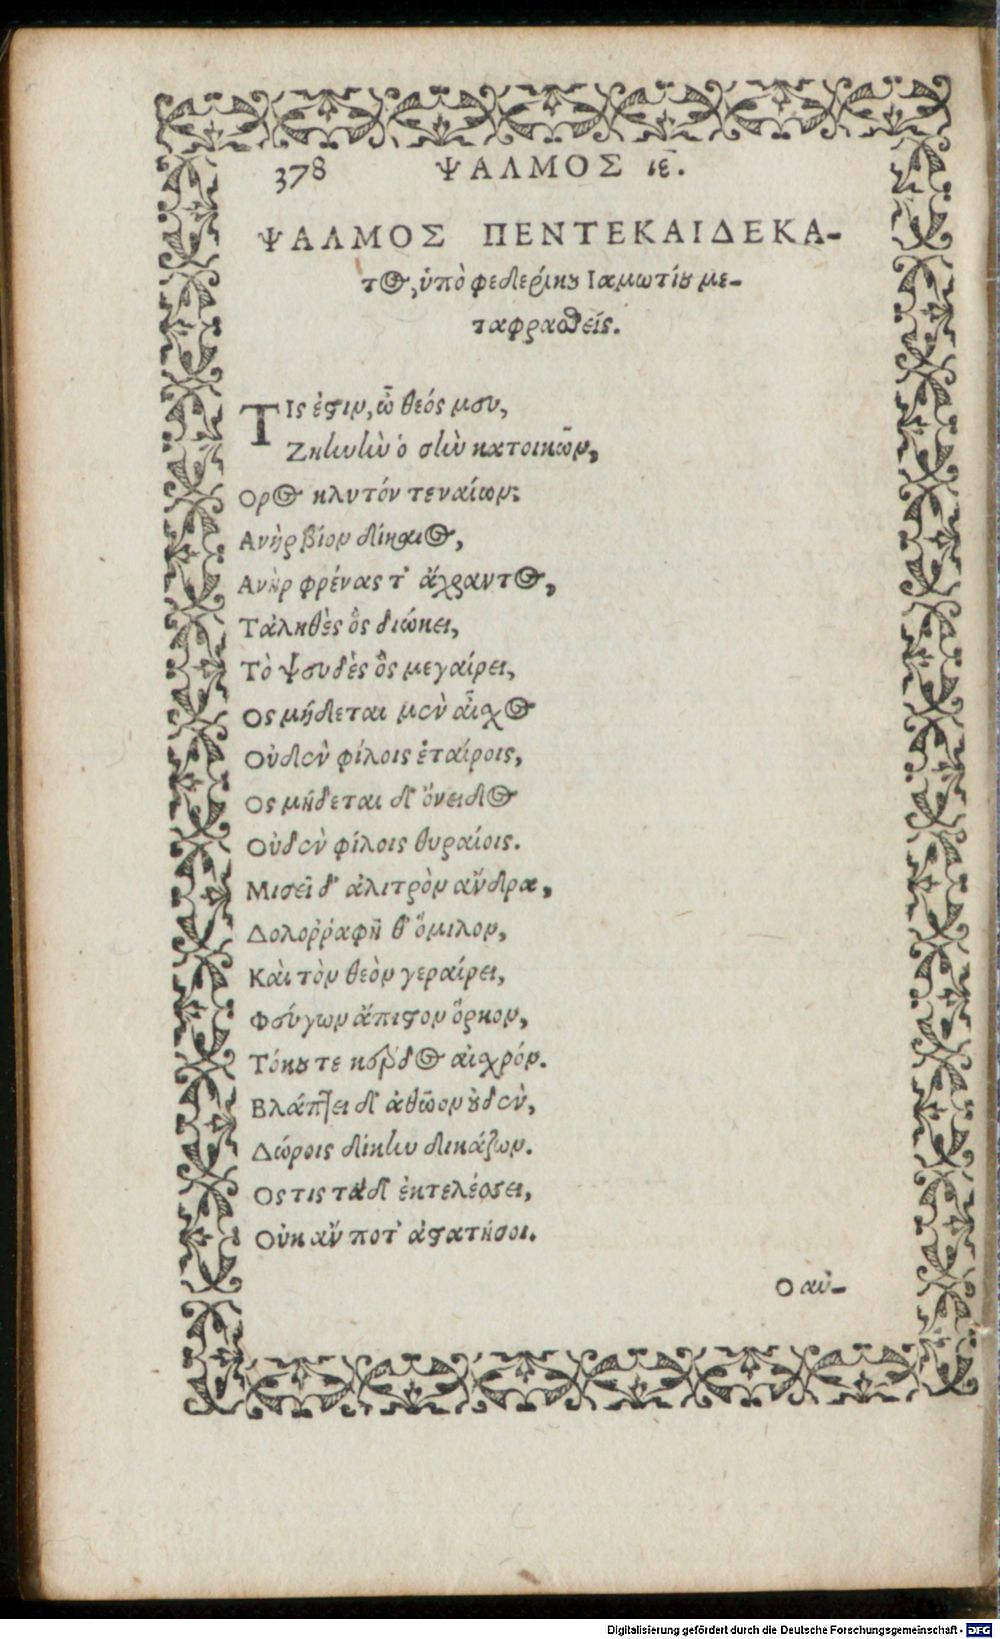 378 ΨΑΛΜΟΣ ιε.
ΨΑΛΜΟΣ ΠΕΝΤΕΚΑΙΔΕΚΑ-
τος, ὑπὸ φεδερίκου Ιαμωτίου με-
ταφρασθείς.
ΤΙς ἐστιν, ὦ θεός μευ,
Σκηνὴν ὁ σὴν κατοικῶν,
Ορος κλυτόν τε ναίων;
Ανὴρ βίον δίκαιος,
Ανὴρ φρένας τ' ἄχραντος,
Τἀληθὲς ὃς διώκει,
Τὸ ψευδὲς ὃς μεγαίρει,
Ος μήδεται μὲν αἶσχος
Οὐδὲν φίλοις ἑταίροις,
Ος μήδεται δ' ὄνειδος
Οὐδὲν φίλοις θυραίοις.
Μισεῖ δ' ἀλιτρὸν ἄνδρα,
Δολοῤῥαφῆ θ' ὅμιλον,
Καὶ τὸν θεὸν γεραίρει,
Φεύγων ἄπιστον ὅρκον,
Τόκου τε κέρδος αἰσχρόν.
Βλάπτει δ' ἀθῶον οὐδὲν,
Δώροις δίκην δικάζων.
Ος τις τάδ' ἐκτελέσσει,
Οὐκ ἄν ποτ' ἀστατήσοι.
Ο αὐ-
Digitalisierung gefördert durch die Deutsche Forschungsgemeinschaft - DFG